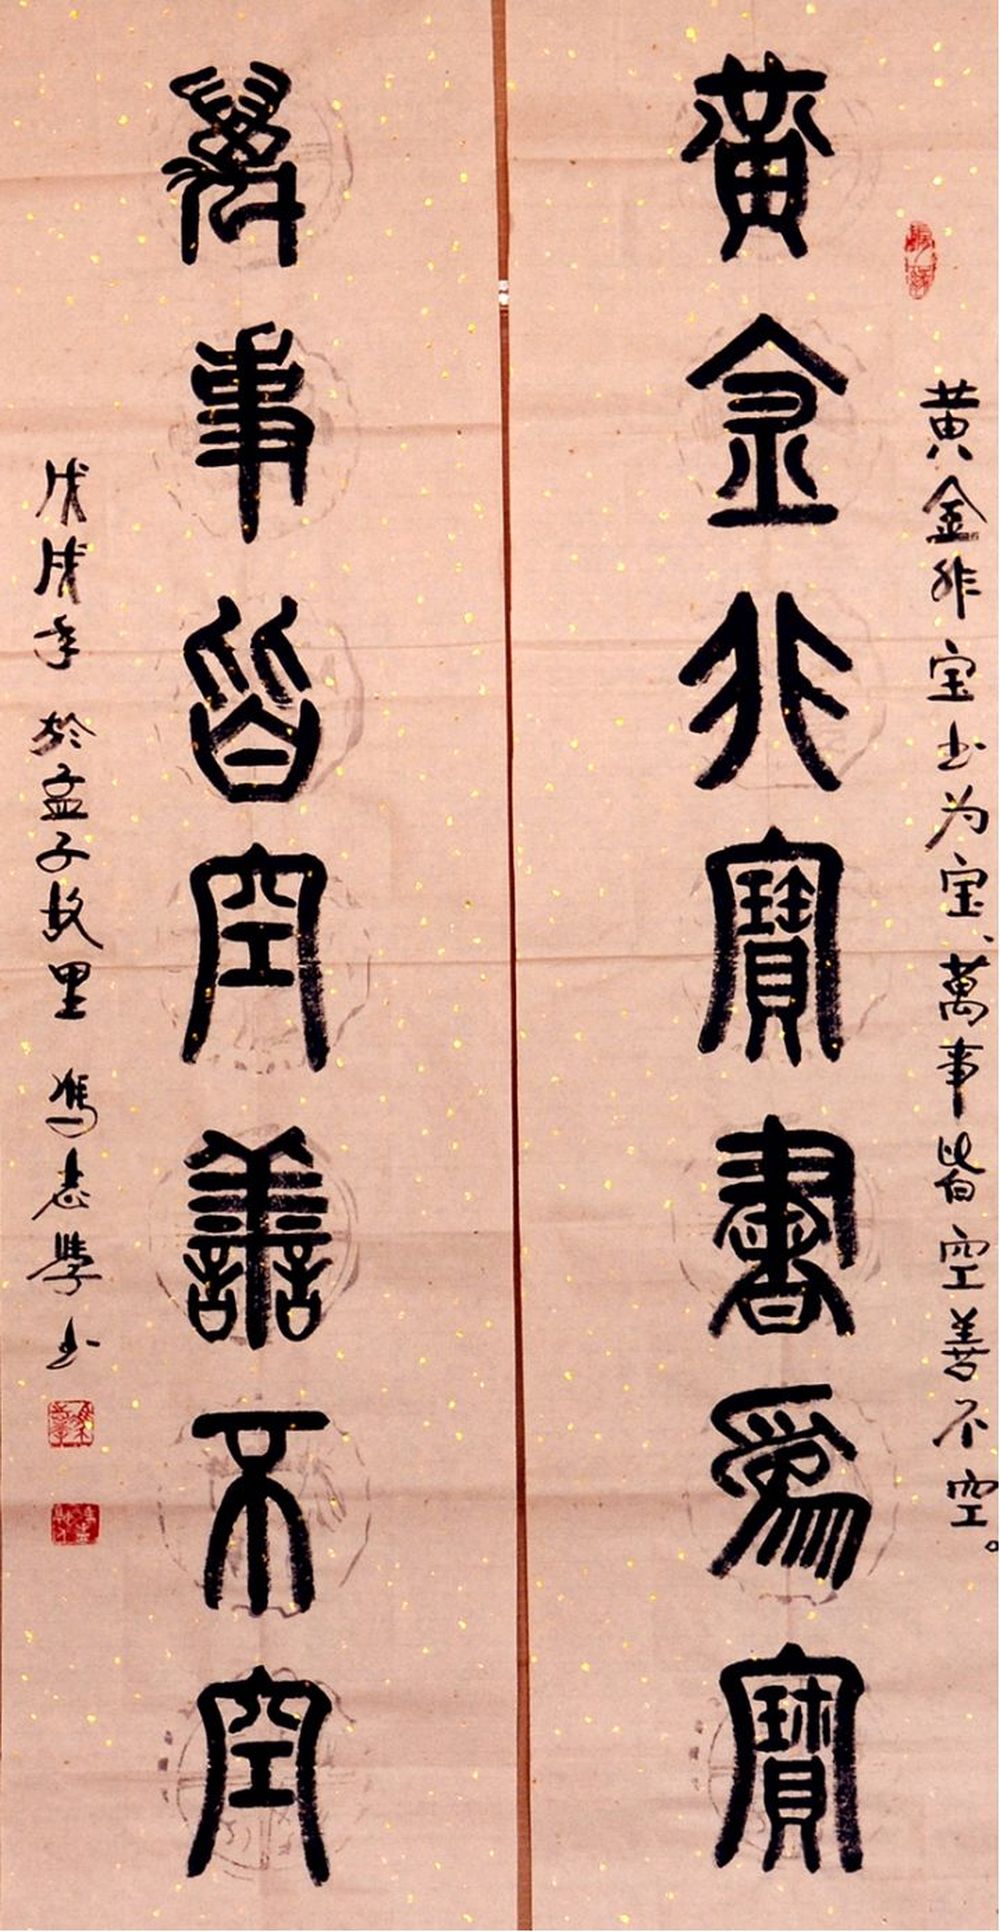 黄金非宝书为宝、萬事皆空善不空。
黃金非寶書為寶
萬事皆空善不空
戊戌年於孟子故里馮志學书